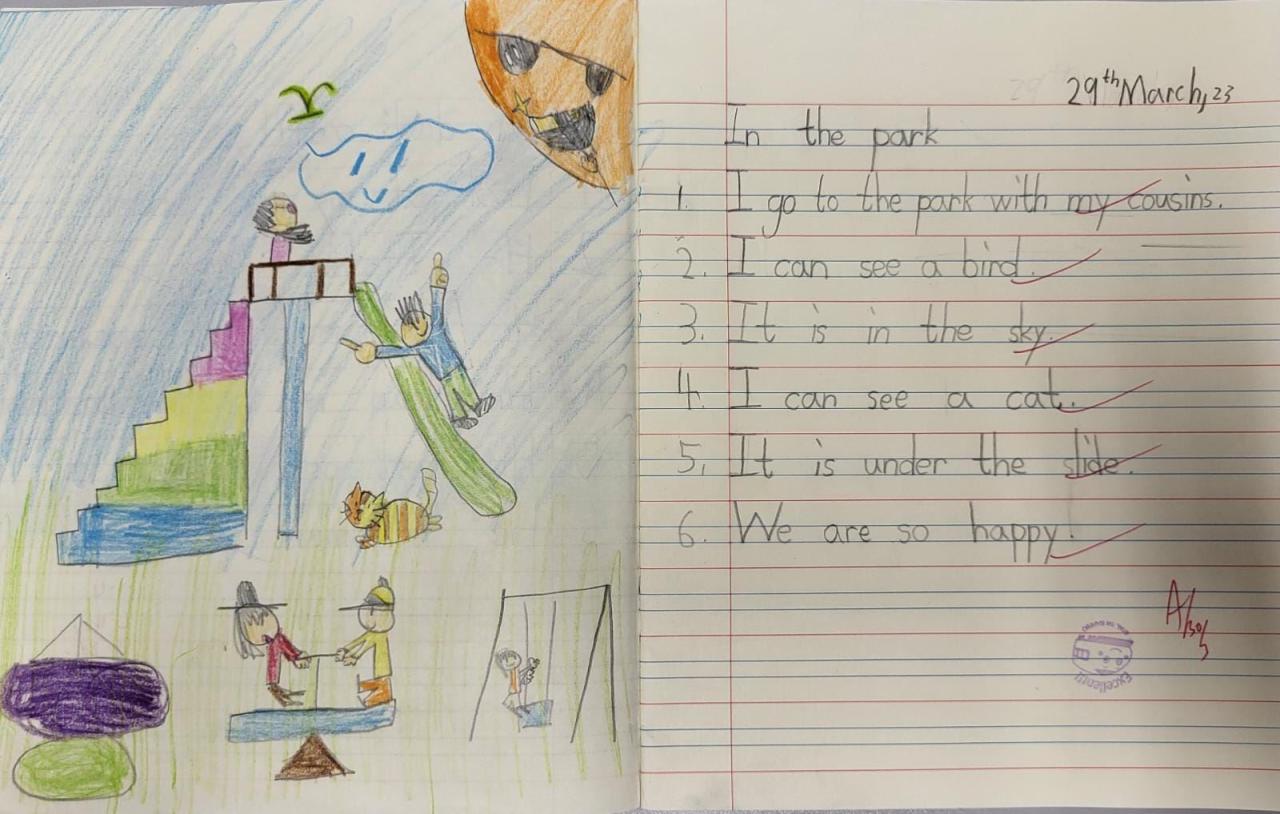 29th March, 23
In the park
1. I go to the park with my cousins.
2. I can see a bird.
3. It is in the sky.
4. I can see a cat.
5. It is under the slide.
6. We are so happy!
A/30/3
Excellent!!!